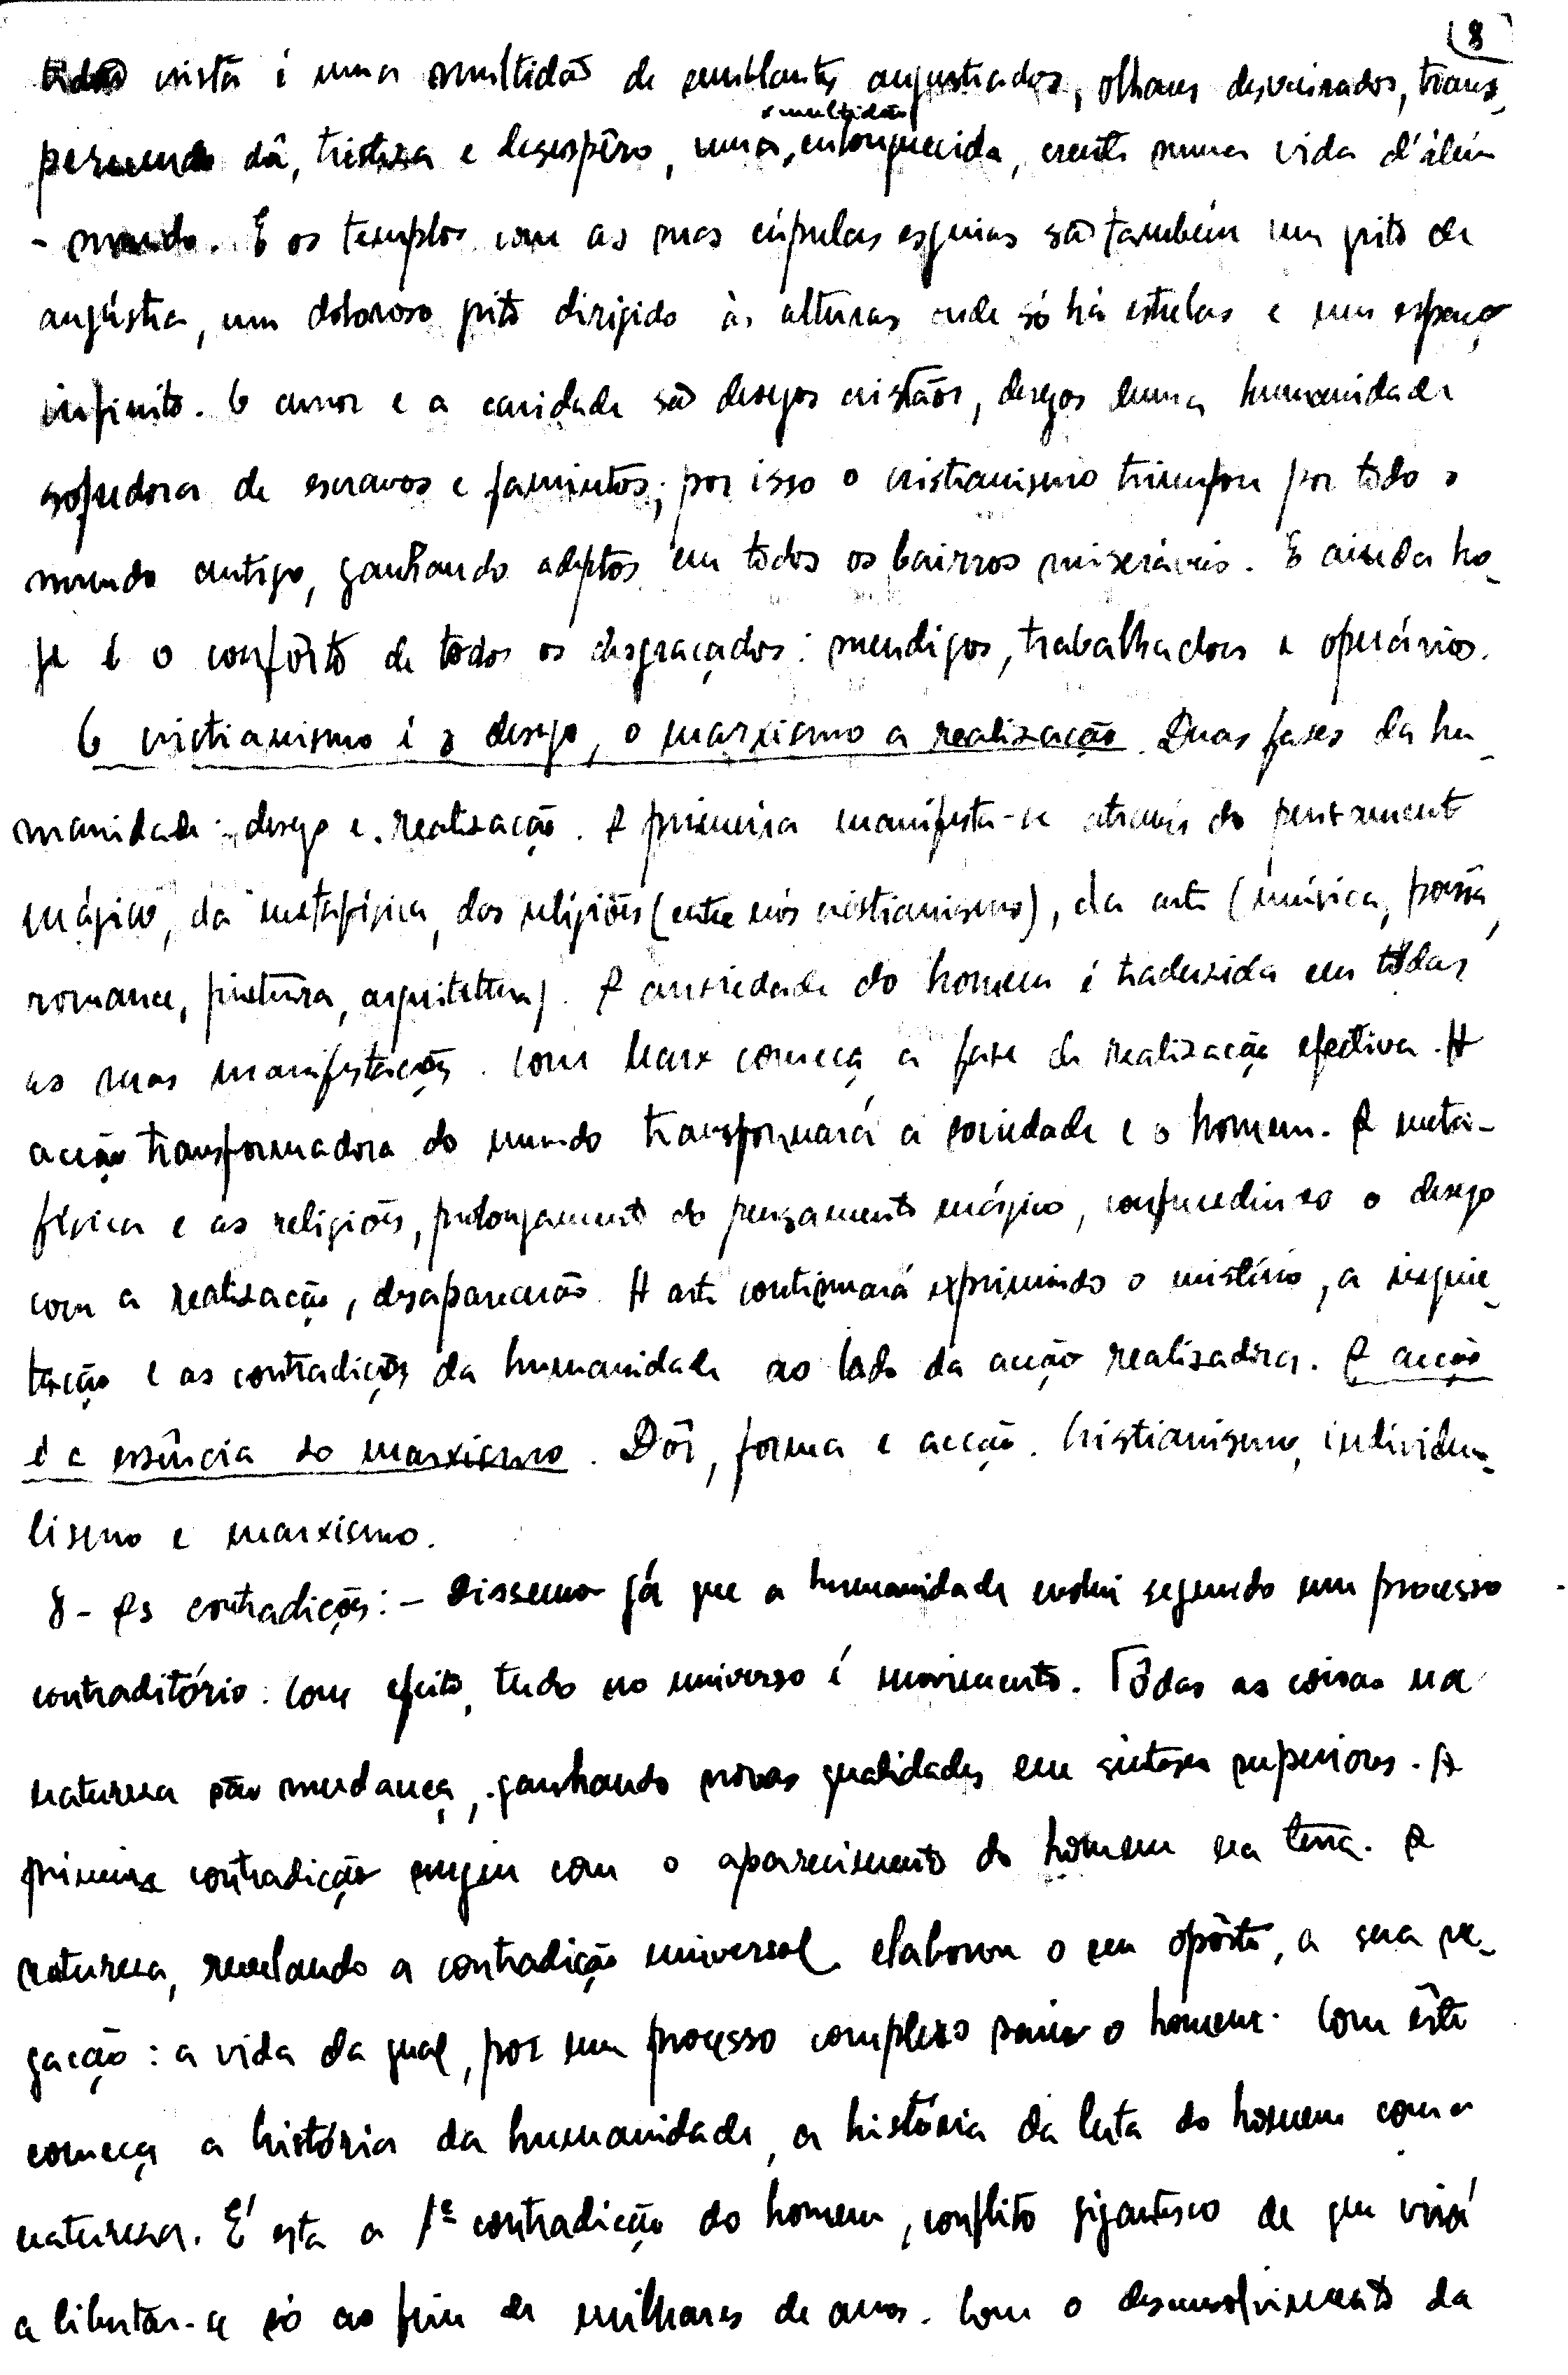 8
cristã é uma multidão de semblantes angustiados, olhares desvairados, trans-
parecendo dôr, tristeza e desespêro, uma multidão enlouquecida, crente numa vida d'além
- mundo. E os templos com as suas cúpulas esguias são também um grito de
angústia, um doloroso grito dirigido às alturas onde só há estrelas e um espaço
infinito. O amor e a caridade são desejos cristãos, desejos duma humanidade
sofredora de escravos e famintos; por isso o cristianismo triunfou por todo o
mundo antigo, ganhando adeptos em todos os bairros miseráveis. E ainda ho-
je é o confôrto de todos os desgraçados: mendigos, trabalhadores e operários.
O cristianismo é o desejo, o marxismo a realização. Duas fases da hu-
manidade: desejo e realização. A primeira manifesta-se através do pensamento
mágico, da metafísica, das religiões (entre nós cristianismo), da arte (música, poesia,
romance, pintura, arquitetura). A ansiedade do homem é traduzida em tôdas
as suas manifestações. Com Marx começa a fase da realização efectiva. A
acção transformadora do mundo transformará a sociedade e o homem. A meta-
física e as religiões, prolongamento do pensamento mágico, confundindo o desejo
com a realização, desaparecerão. A arte continuará exprimindo o mistério, a inquie-
tação e as contradições da humanidade ao lado da acção realizadora. A acção
é a essência do marxismo. Dôr, forma e acção. Cristianismo, individua-
lismo e marxismo.
8 - As contradições: - Dissemos já que a humanidade evolui segundo um processo
contraditório. Com efeito, tudo no universo é movimento. Tôdas as coisas na
natureza são mudança, ganhando novas qualidades em sínteses superiores. A
primeira contradição surgiu com o aparecimento do homem na terra. A
natureza, revelando a contradição universal elaborou o seu opôsto, a sua ne-
gação: a vida da qual, por um processo complexo saiu o homem. Com êste
começa a história da humanidade, a história da luta do homem com a
natureza. É esta a 1ª contradição do homem, conflito gigantesco de que virá
a libertar-se só ao fim de milhares de anos. Com o desenvolvimento da